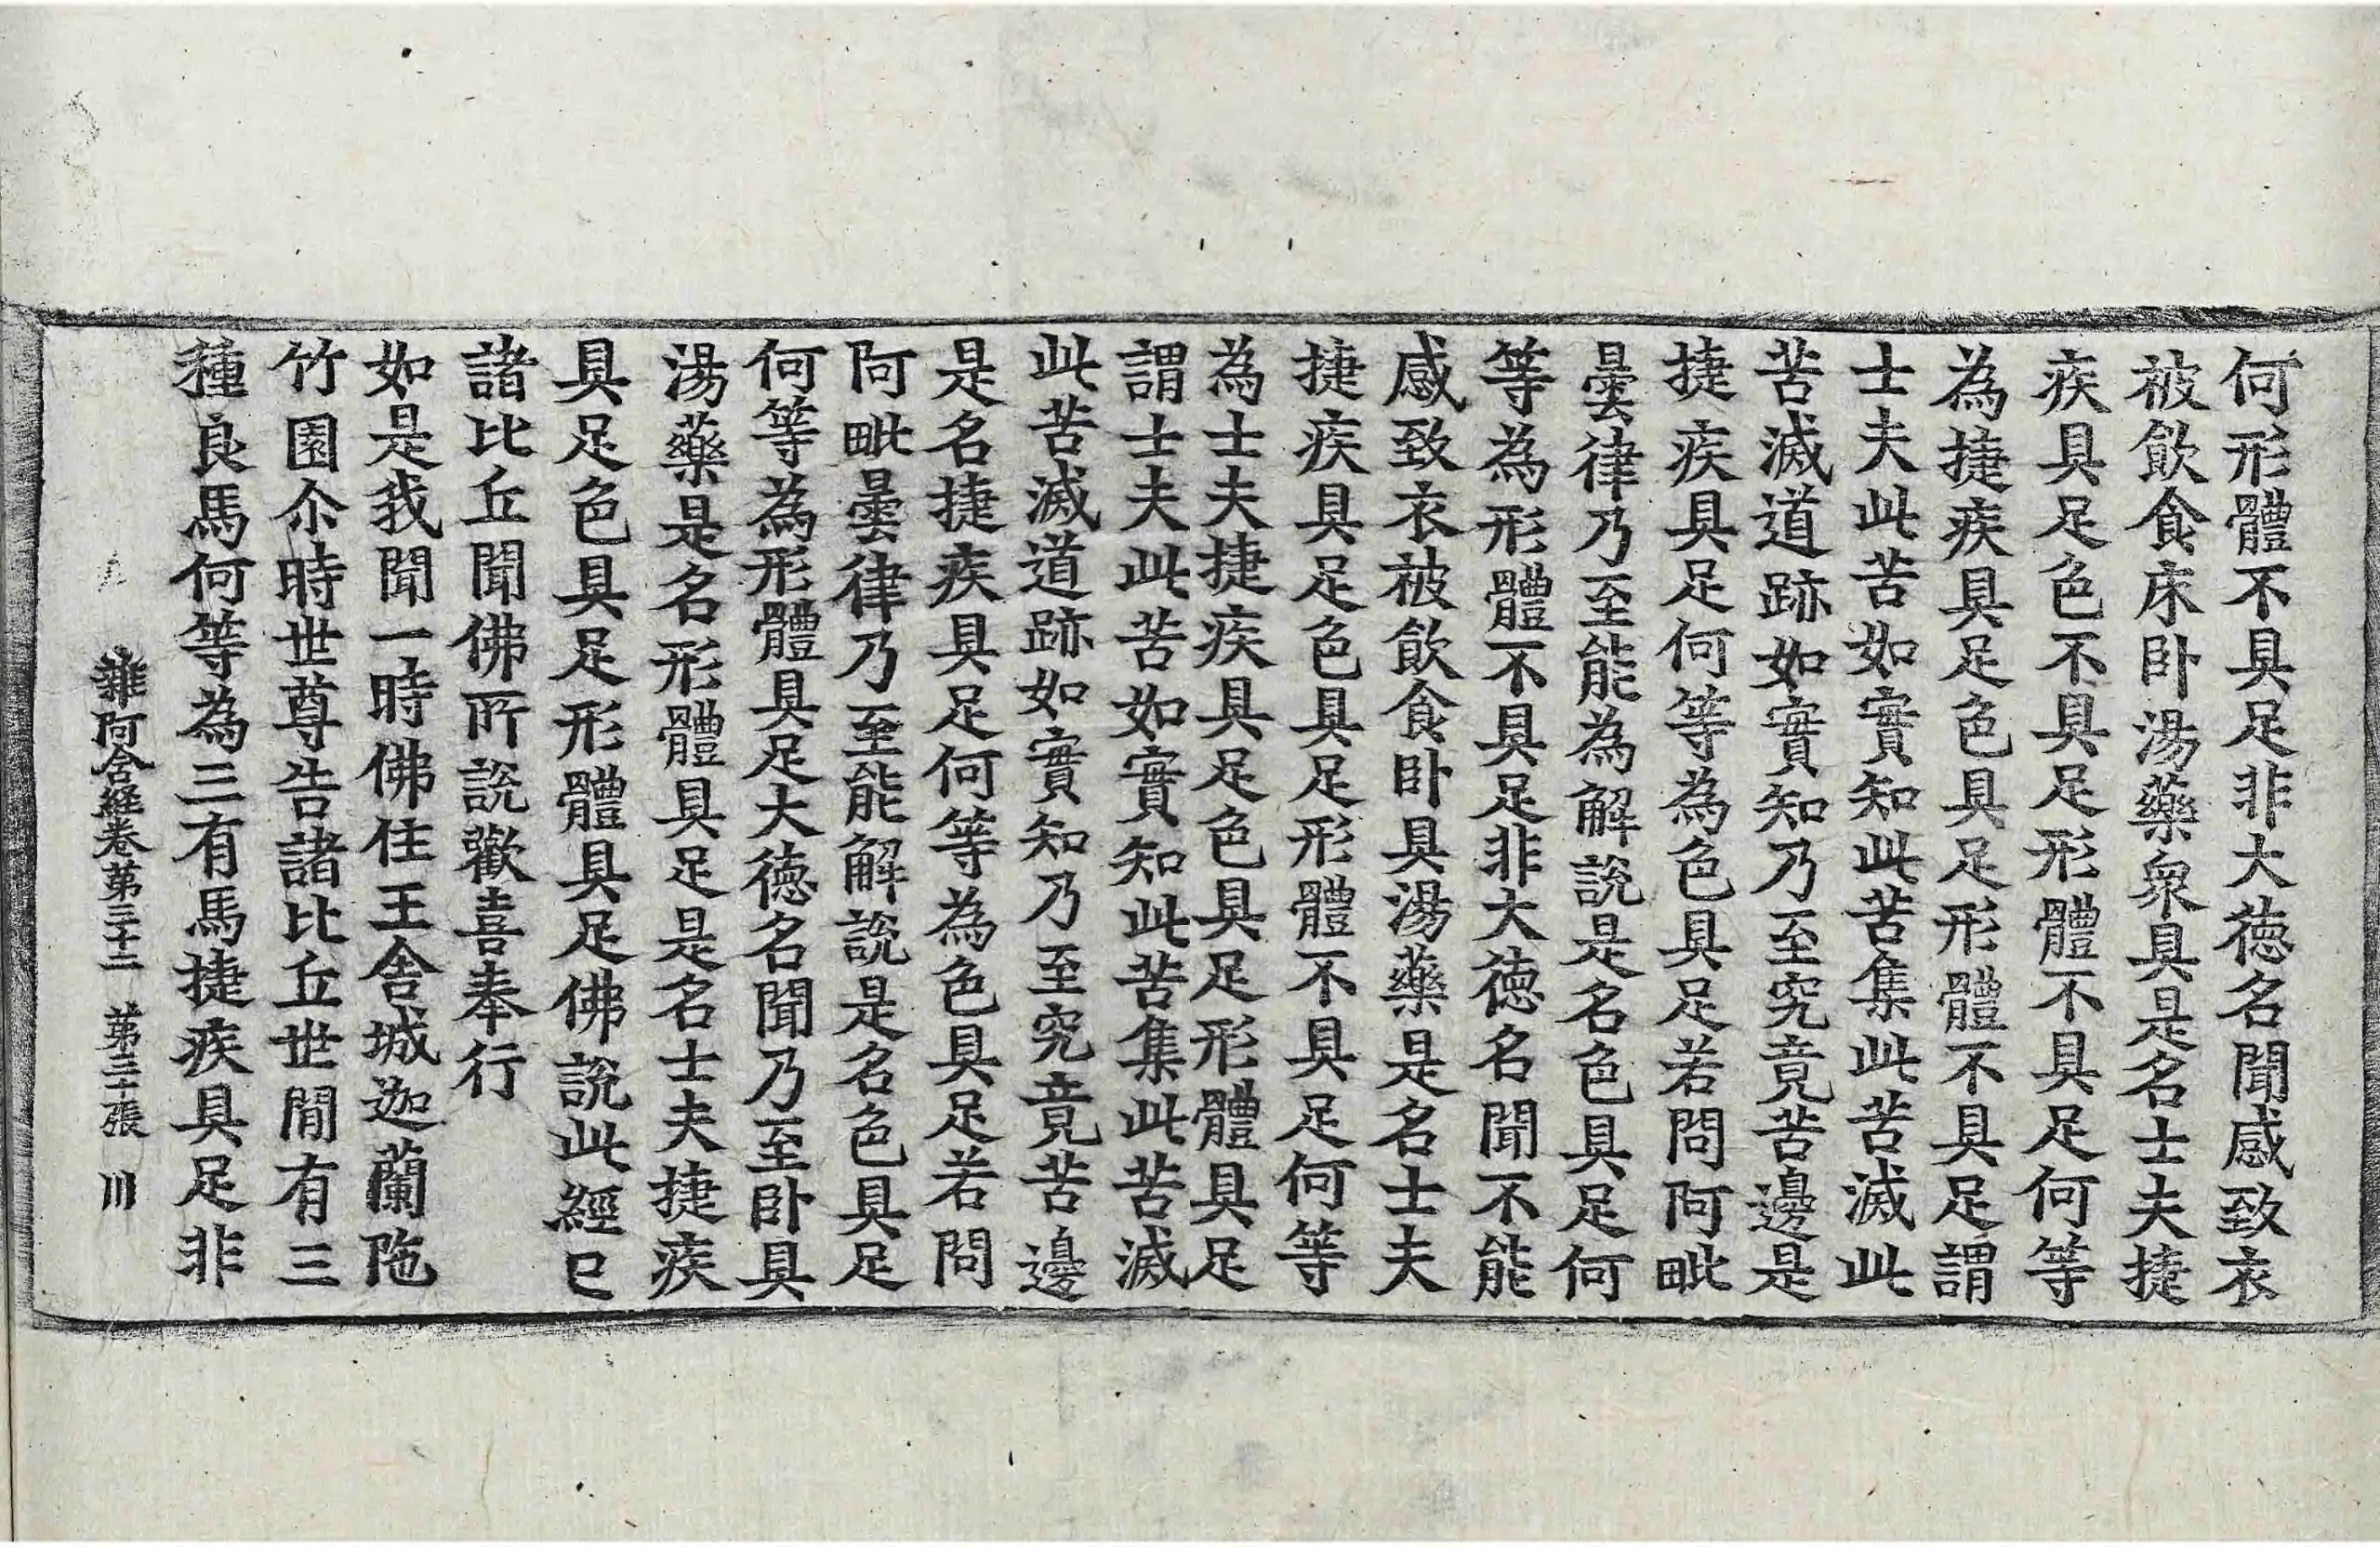 何形體不具足非大德名聞感致衣
被飲食床卧湯藥衆具是名士夫捷
疾具足色不具足形體不具足何等
為捷疾具足色具足形體不具足謂
士夫此苦如實知此苦集此苦滅此
苦滅道跡如實知乃至究竟苦邊是
捷疾具足何等為色具足若問阿毗
曇律乃至能為解說是名色具足何
等為形體不具足非大德名聞不能
感致衣被飲食卧具湯藥是名士夫
捷疾具足色具足形體不具足何等
為士夫捷疾具足色具足形體具足
謂士夫此苦如實知此苦集此苦滅
此苦滅道跡如實知乃至究竟苦邊
是名捷疾具足何等為色具足若問
阿毗曇律乃至能解說是名色具足
何等為形體具足大德名聞乃至卧具
湯藥是名形體具足是名士夫捷疾
具足色具足形體具足佛說此經已
諸比丘聞佛所說歡喜奉行
如是我聞一時佛住王舍城迦蘭陁
竹園尒時世尊告諸比丘世間有三
種良馬何等為三有馬捷疾具足非
雜阿含経卷第三十三 第三十張 川